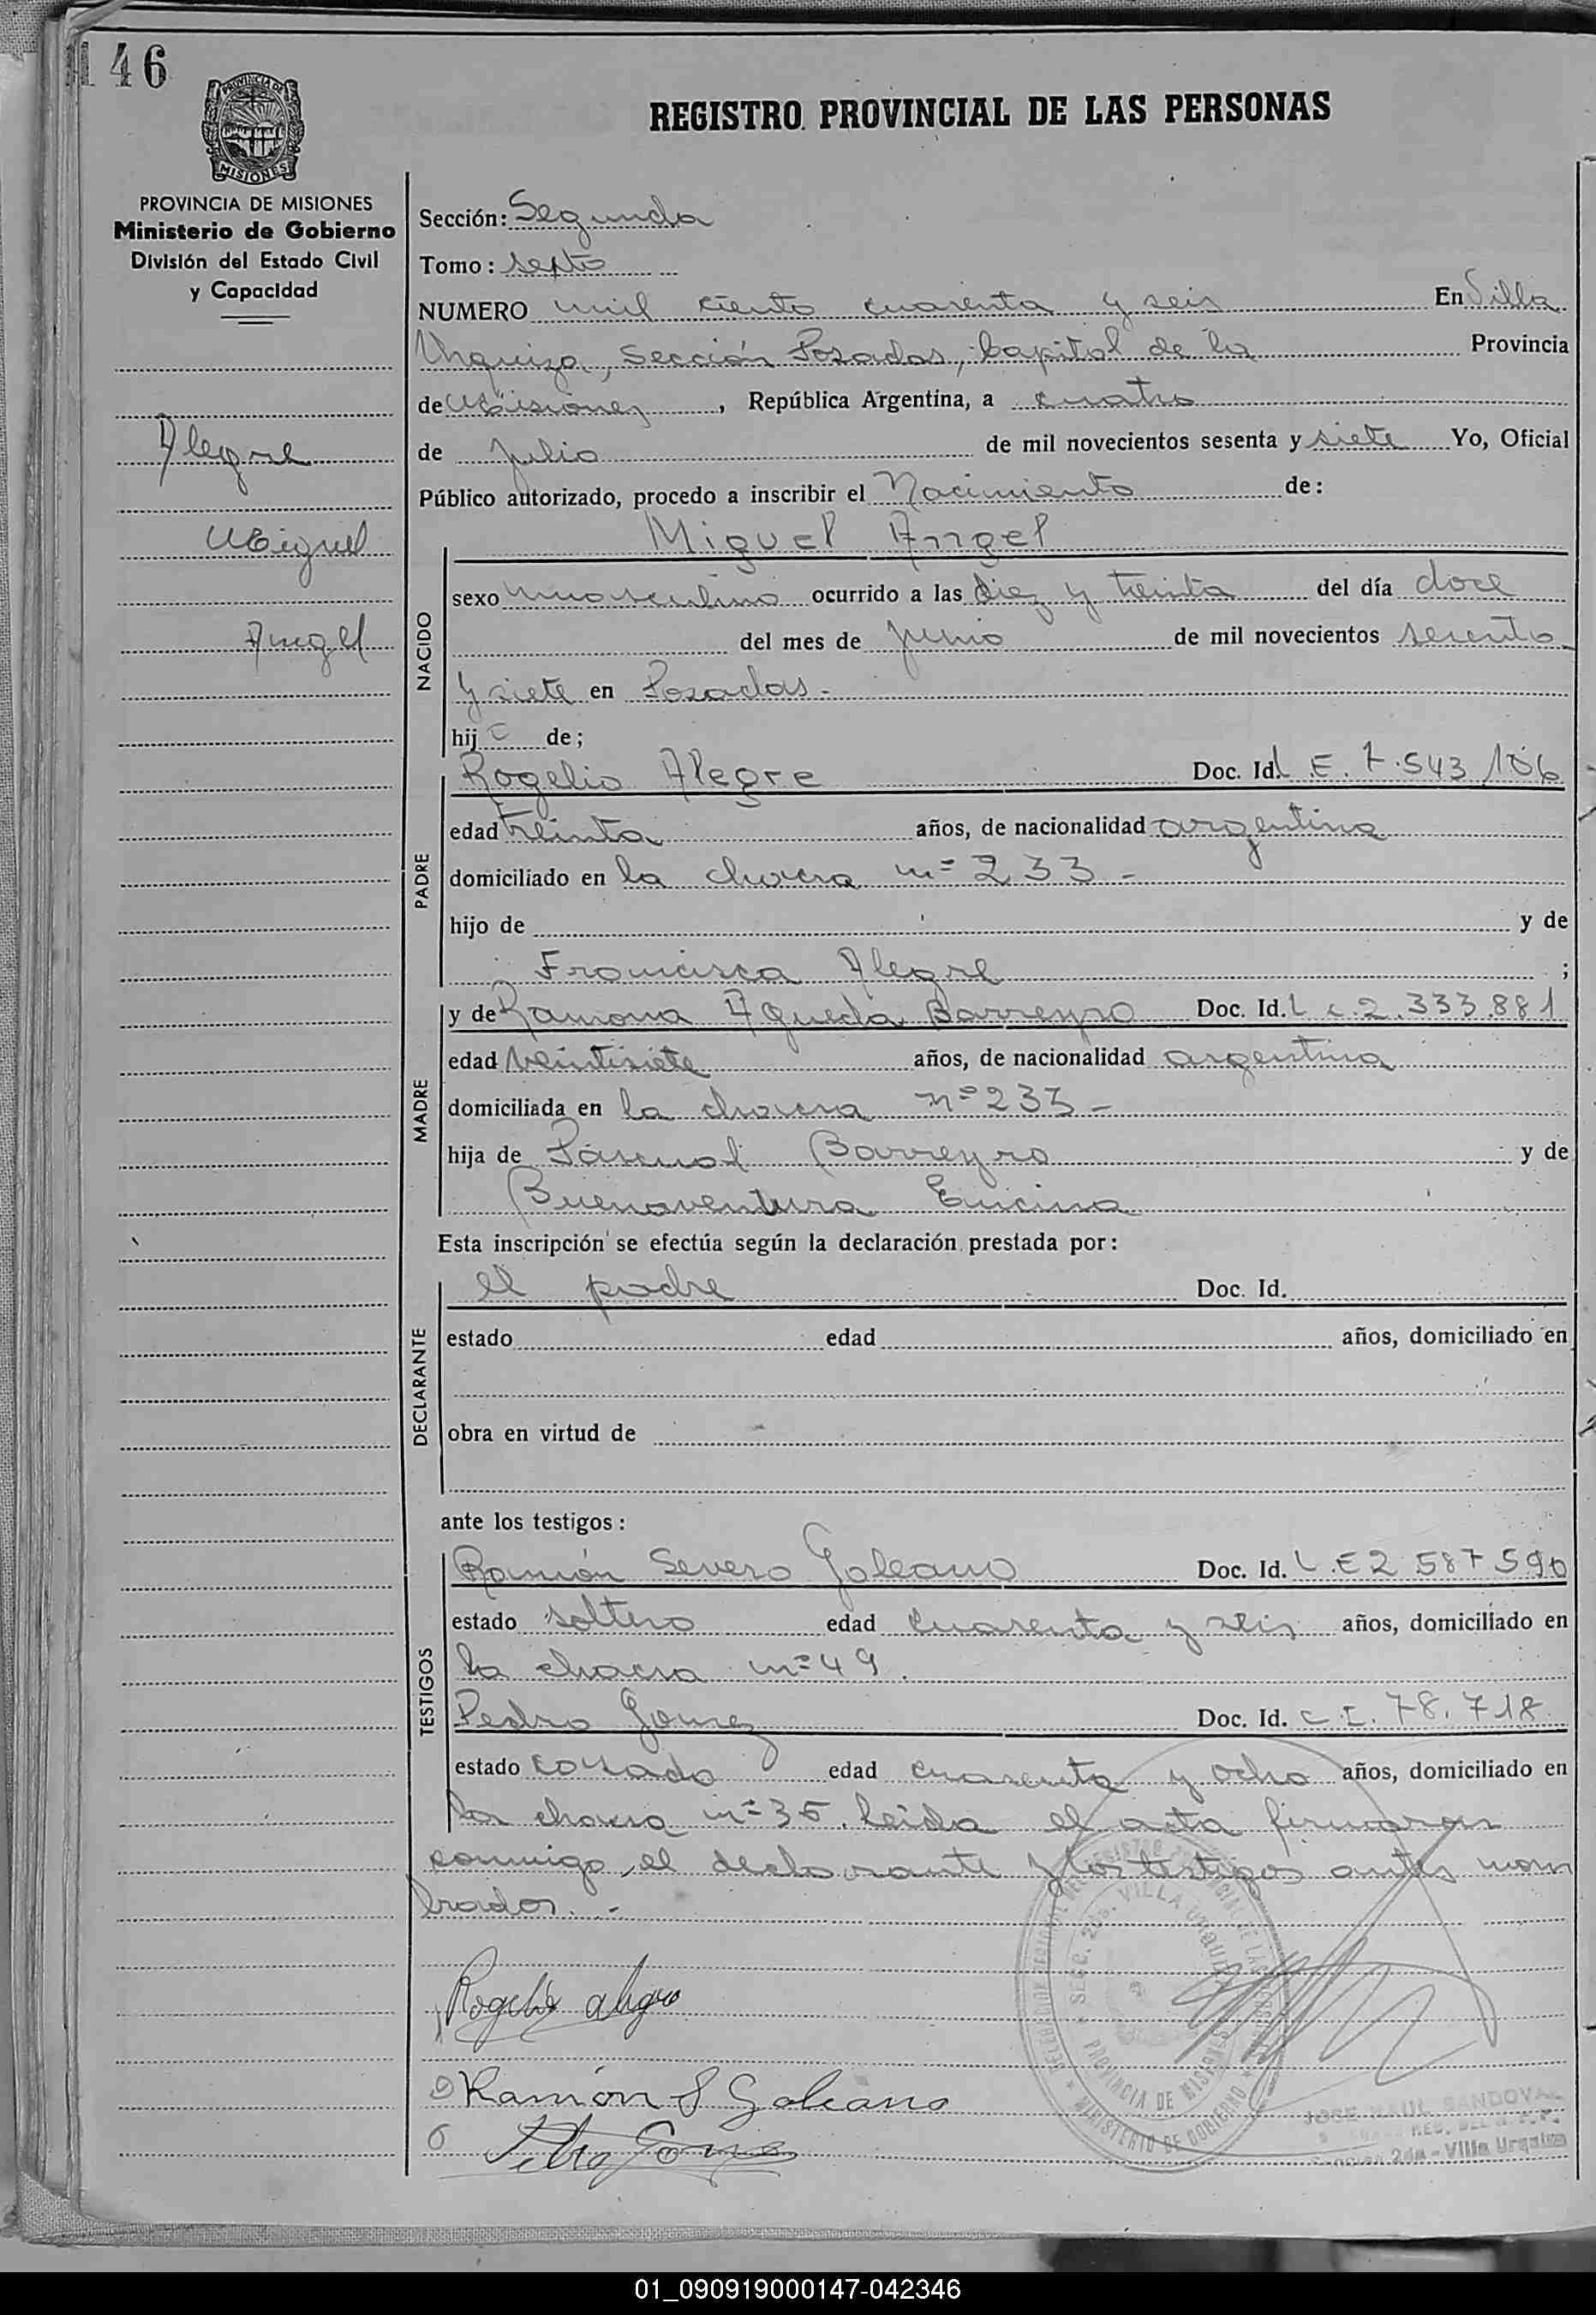 146
PROVINCIA DE
MISIONES
REGISTRO PROVINCIAL DE LAS PERSONAS
PROVINCIA DE MISIONES
Ministerio de Gobierno
División del Estado Civil
y Capacidad
Alegre
Miguel
Angel
Sección: Segunda
Tomo: septo
NUMERO mil ciento cuarenta y seis En Villa
Urquiza, Sección Posadas, Capital de la Provincia
de Misiones, República Argentina, a cuatro
de Julio de mil novecientos sesenta y siete Yo, Oficial
Público autorizado, procedo a inscribir el Nacimiento de:
NACIDO
Miguel Angel
sexo masculino ocurrido a las diez y treinta del día doce
del mes de junio de mil novecientos sesenta
y siete en Posadas.-
hij o de;
PADRE
Rogelio Alegre Doc. Id. L E. 7.543 106
edad treinta años, de nacionalidad argentina
domiciliado en la chacra nº 233 -
hijo de y de
Francisca Alegre ;
MADRE
y de Ramona Agueda Barreyro Doc. Id. L c. 2.333.881
edad veintisiete años, de nacionalidad argentina
domiciliada en la chacra nº 233 -
hija de Pascual Barreyro y de
Buenaventura Encina
Esta inscripción se efectúa según la declaración prestada por:
DECLARANTE
el padre Doc. Id.
estado edad años, domiciliado en
obra en virtud de
ante los testigos:
TESTIGOS
Ramón Severo Galeano Doc. Id. L.E 2 587 590
estado soltero edad cuarenta y seis años, domiciliado en
la chacra nº 49.
Pedro Gomez Doc. Id. C.I. 78.718
estado casado edad cuarenta y ocho años, domiciliado en
la chacra nº 36. leida el acta firmaron
conmigo, el declarante y los testigos antes nom
brados. -
Rogelio alegre
Ramón S Galeano
Pedro Gomez
SECC. 2da. VILLA URQUIZA
PROVINCIA DE MISIONES
MINISTERIO DE GOBIERNO
JOSE RAUL SANDOVAL
2da - Villa Urquiza
01_090919000147-042346